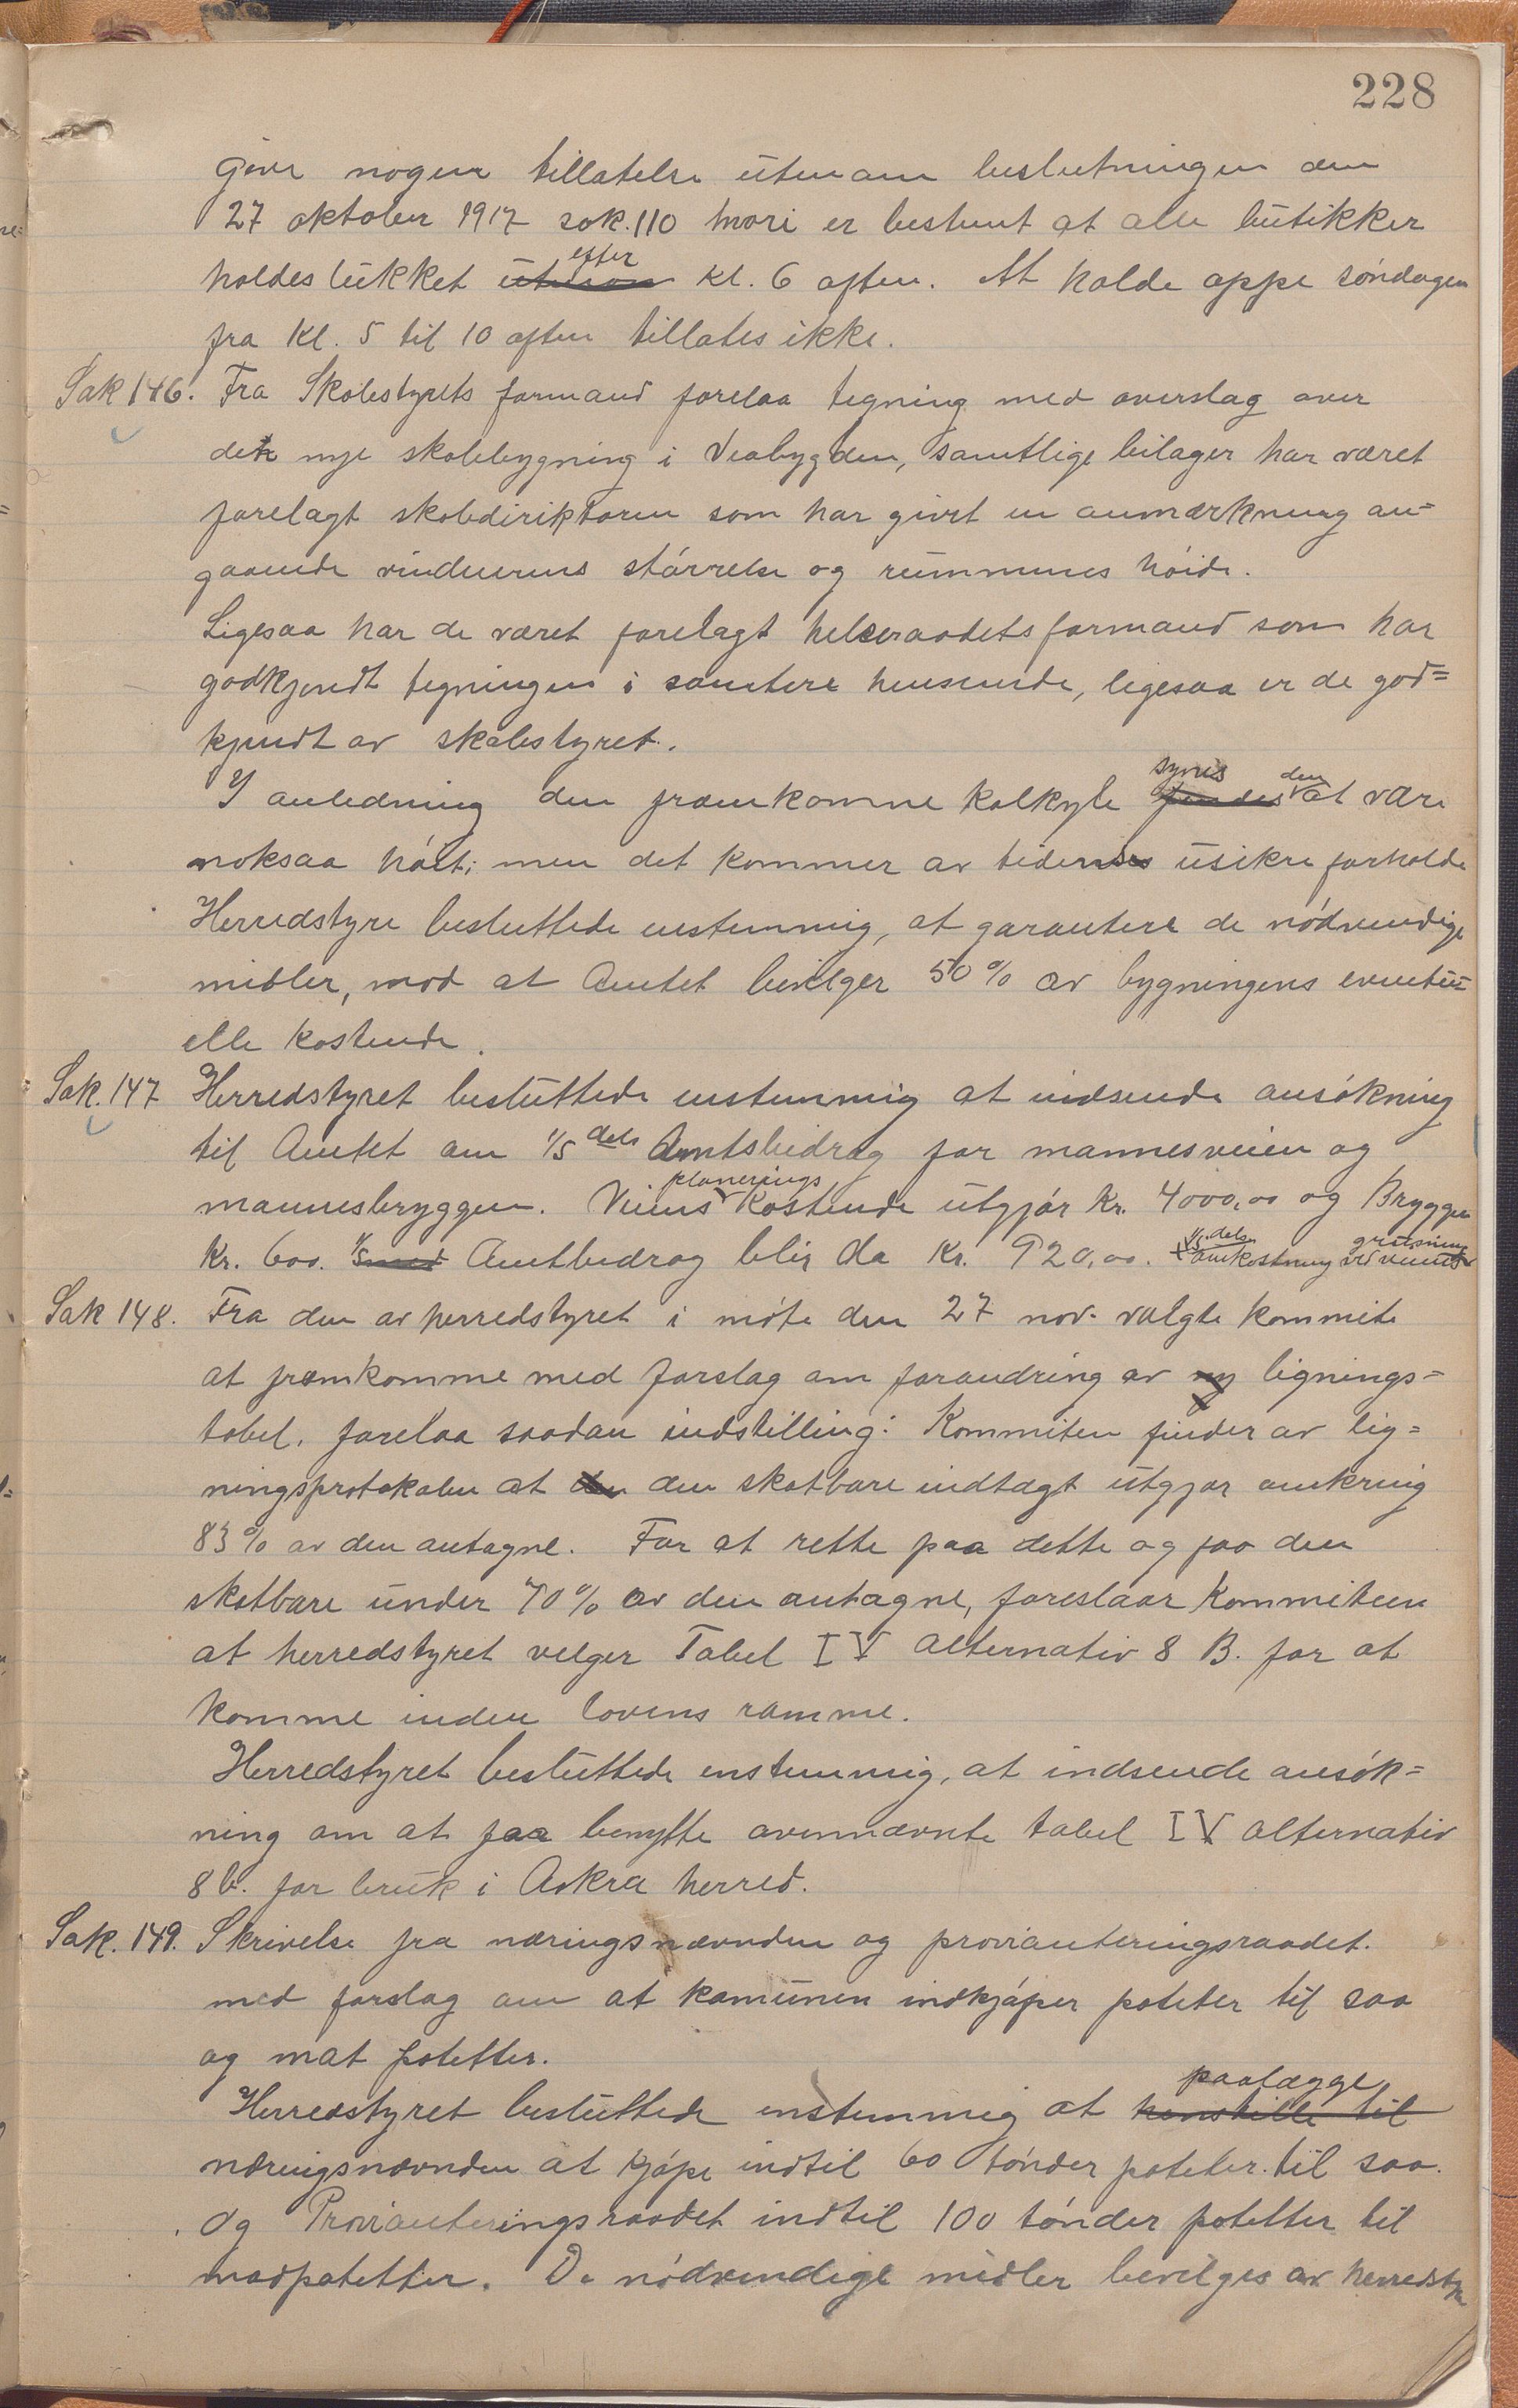 228
give nogen tillatelse utenom beslutningen den
27 oktober 1917 sak. 110 hvori er bestemt at alle butikker
holdes lukket efter kl. 6 aften. At holde oppe søndagen
fra kl. 5 til 10 aften tillates ikke.
Sak 146. Fra Skolestyrets formand forelaa tegning med overslag over
den nye skolebygning i Veabygden, samtlige bilager har været
forelagt skoledirektøren som har givet en anmærkning an=
gaaende vinduerens størrelse og rummenes høide.
Ligesaa har de været forelagt helseraadets formand som har
godkjendt tegningen i sanitere henseende, ligesaa er de god=
kjendt av skolestyret.
I anledning den fremkomne kalkyle synes den at være
noksaa høit; men det kommer av tidens usikre forholde
Herredstyre besluttede enstemmig, at garantere de nødvendige
midler, mod at Amtet bevilger 50% av bygningens eventu=
elle kostende.
Sak. 147 Herredstyret besluttede enstemmig at indsende ansøkning
til Amtet om 1/5 dels Amtsbidrag for mannesveien og
mannesbryggen. Veiens planerings kostende utgjør kr. 4000,00 og Bryggen
kr. 600. 1/5 Amtbidrag blir da kr. 920,00. 1/5 dels omkostning ved veiens grusning
Sak 148. Fra den av herredstyret i møte den 27 nov. valgte kommite
at fremkomme med forslag om forandring av lignings=
tabel, forelaa saadan indstilling: Kommiten finder av lig=
ningsprotokolen at den skatbare indtægt utgjør omkring
83% av den antagne. For at rette paa dette og faa den
skatbare under 70% av den antagne, foreslaar Kommiteen
at herredstyret velger Tabel IV alternativ 8 B. for at
komme inden lovens ramme.
Herredstyret besluttede enstemmig, at indsende ansøk=
ning om at faa benytte ovennævnte tabel IV alternativ
8 b. for bruk i Avkra herred.
Sak. 149. Skrivelse fra næringsnævnden og provianteringsraadet.
med forslag om at komunen indkjøper poteter til saa
og mat potetter.
Herredstyret besluttede enstemmig at paalægge
næringsnævnden at kjøpe indtil 60 tønder poteter til saa.
Og Provianteringsraadet indtil 100 tønder potetter til
madpotetter. De nødvendige midler bevilges av herredsty